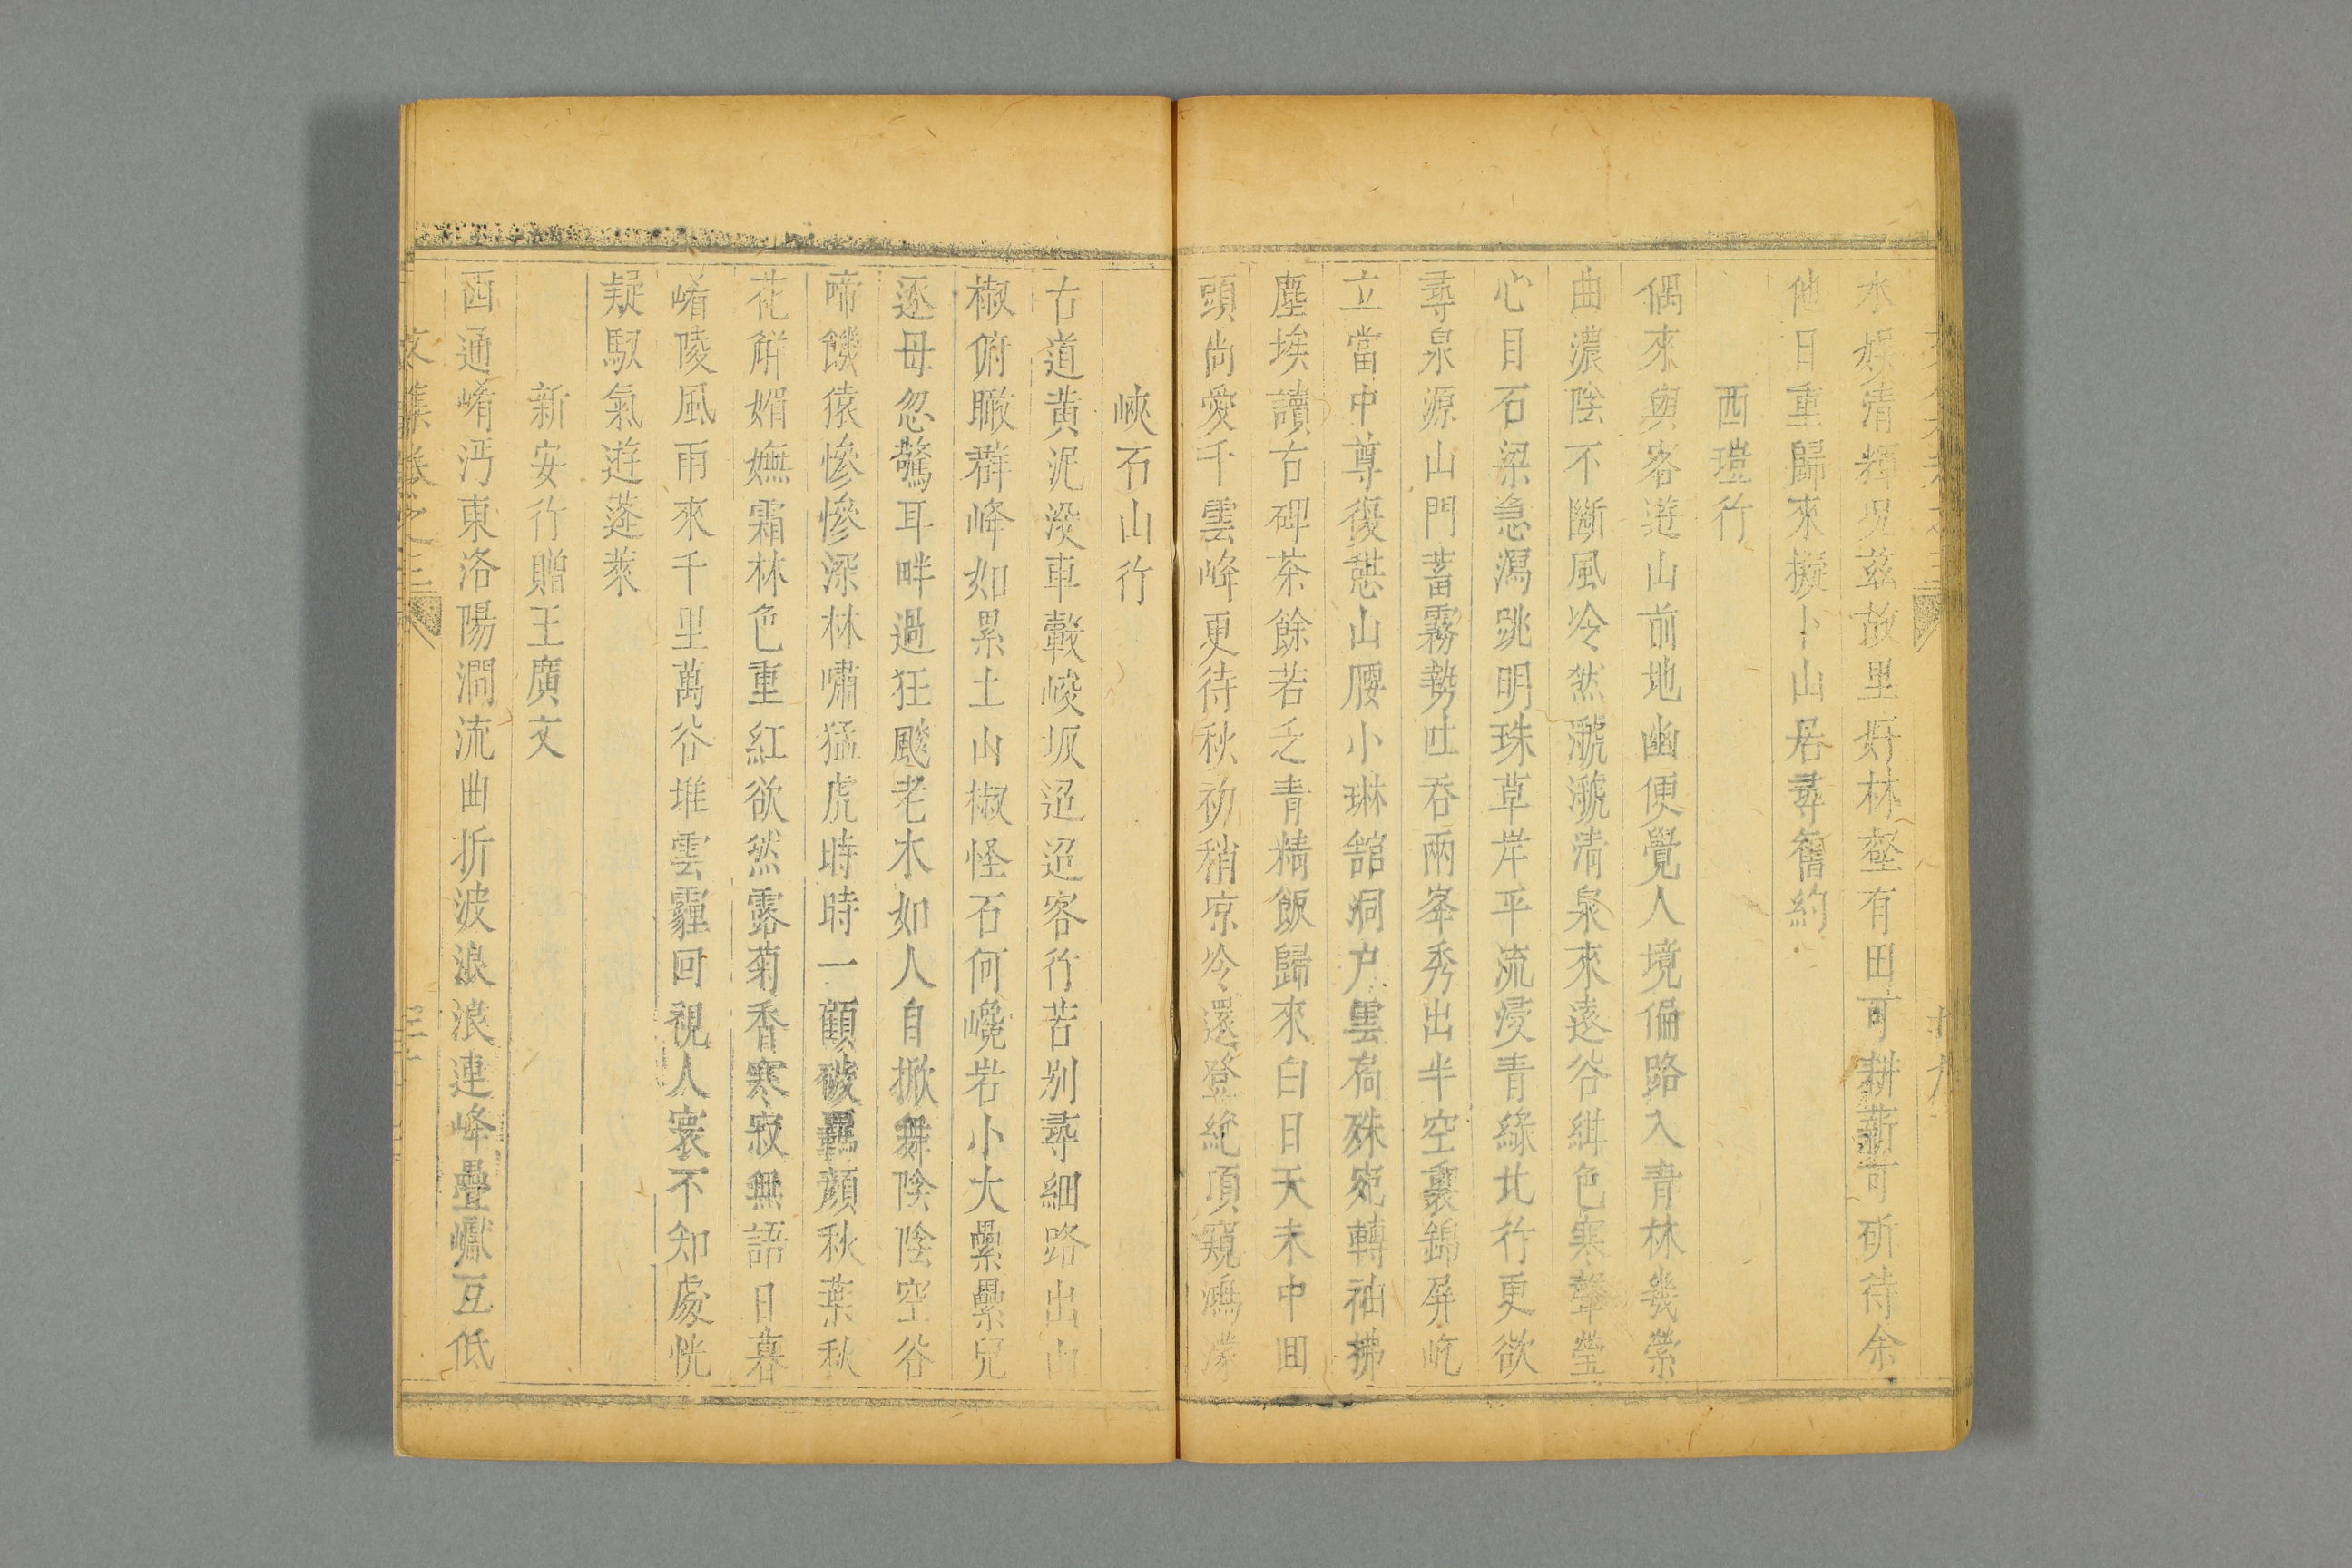 水娛清輝況茲故里好林壑有田可耕薪可斫待余
他日重歸來擬卜山居尋舊約
西瑆行
偶來與客遊山前地幽便覺人境偏路入青林幾縈
曲濃陰不斷風冷然㶁㶁清泉來遠谷紺色寒聲瑩
心目石梁急瀉跳明珠草岸平流浸青綠北行更欲
尋泉源山門蓄霧勢吐吞兩峯秀出半空裏錦屏屹
立當中尊復憩山腰小琳館洞户雲扃殊宛轉袖拂
塵埃讀古碑茶餘若乏青精飯歸來白日天未中回
頭尚愛千雲峰更待秋初稍凉冷還登絶頂窺鴻濛
峽石山行
古道黄泥没車轂峻坂迢迢客行苦别尋細路出山
椒俯瞰群峰如累土山椒怪石何巉岩小大纍纍兒
逐母忽驚耳畔過狂飈老木如人自掀舞陰陰空谷
啼饑猿慘慘深林嘯猛虎時時一顧破羈顔秋葉秋
花鮮媚嫵霜林色重紅欲然露菊香寒寂無語日暮
崤陵風雨來千里萬谷堆雲霾回視人寰不知處恍
疑馭氣遊蓬萊
新安行贈王廣文
西通崤沔東洛陽澗流曲折波浪浪連峰疊巘互低
文集卷之三